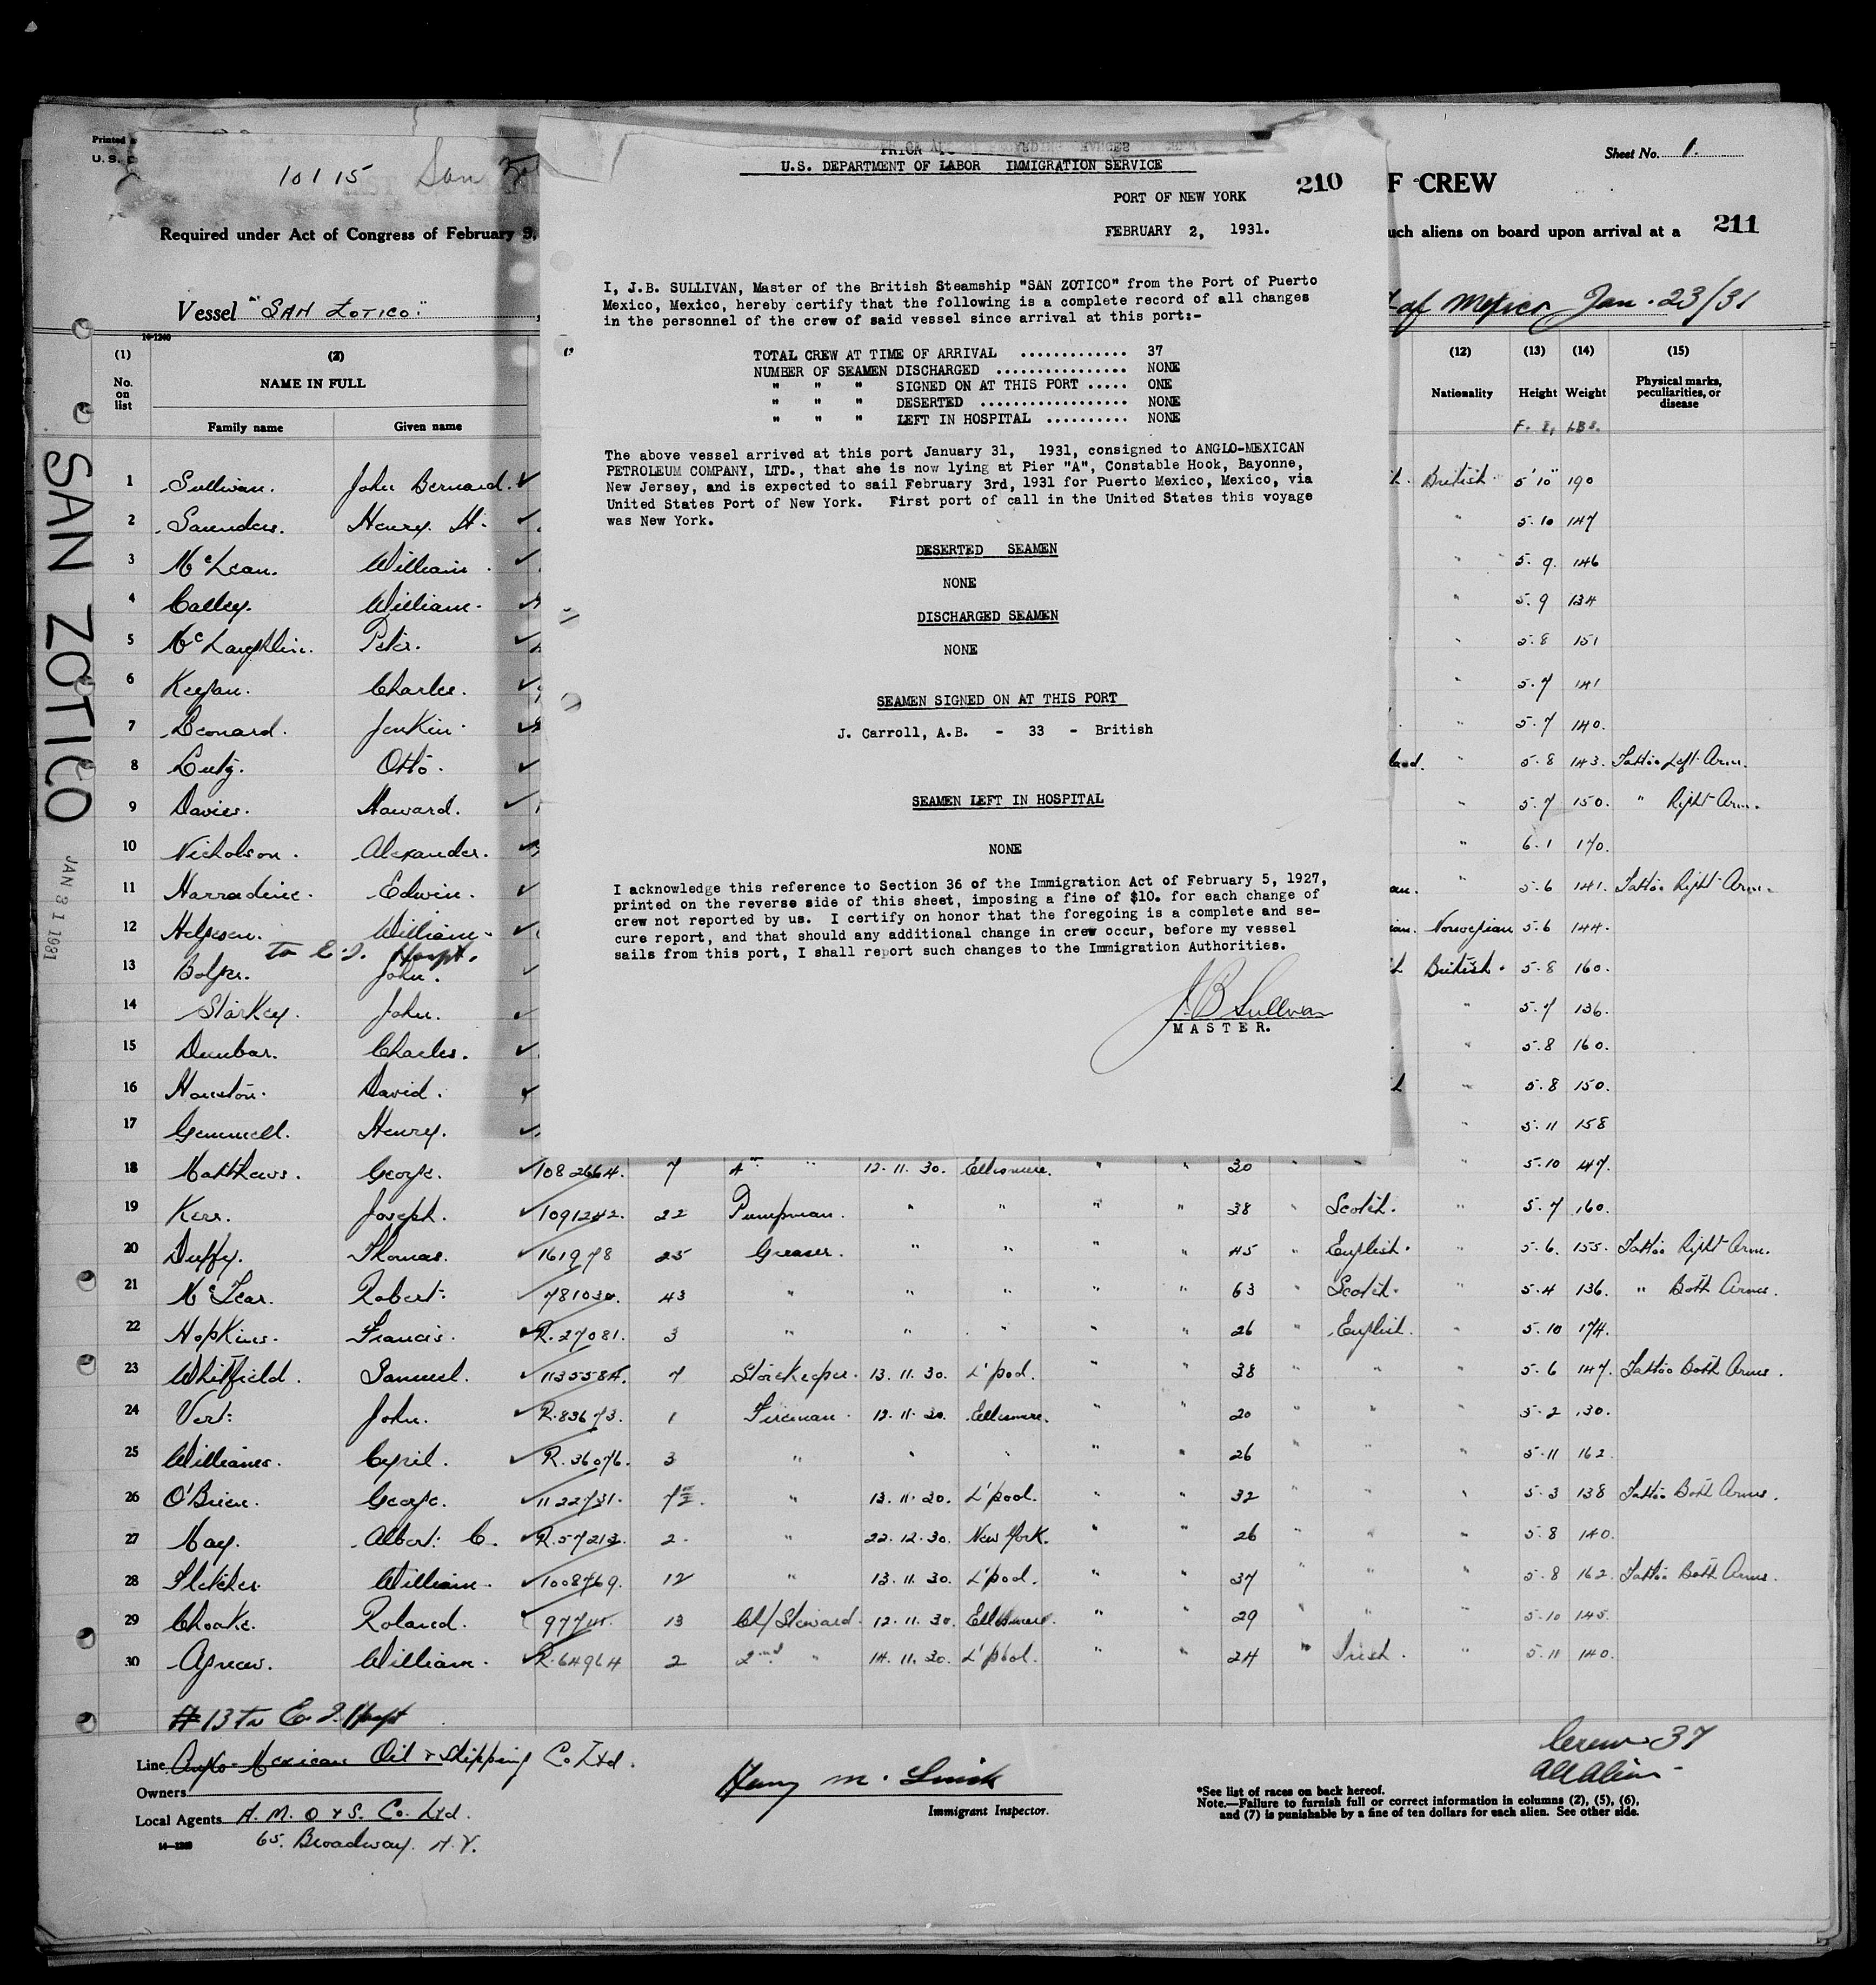 Printed
U.S. D
10115 San Zo
Required under Act of Congress of February
Vessel "SAN ZOTICO"
U.S. DEPARTMENT OF LABOR IMMIGRATION SERVICE
210
PORT OF NEW YORK
FEBRUARY 2, 1931.
I, J.B. SULLIVAN, Master of the British Steamship "SAN ZOTICO" from the Port of Puerto
Mexico, Mexico, hereby certify that the following is a complete record of all changes
in the personnel of the crew of said vessel since arrival at this port:-
TOTAL CREW AT TIME OF ARRIVAL ............. 37
NUMBER OF SEAMEN DISCHARGED ................ NONE
" " " SIGNED ON AT THIS PORT ..... ONE
" " " DESERTED ................... NONE
" " " LEFT IN HOSPITAL .......... NONE
The above vessel arrived at this port January 31, 1931, consigned to ANGLO-MEXICAN
PETROLEUM COMPANY, LTD., that she is now lying at Pier "A", Constable Hook, Bayonne,
New Jersey, and is expected to sail February 3rd, 1931 for Puerto Mexico, Mexico, via
United States Port of New York. First port of call in the United States this voyage
was New York.
DESERTED SEAMEN
NONE
DISCHARGED SEAMEN
NONE
SEAMEN SIGNED ON AT THIS PORT
J. Carroll, A.B. - 33 - British
SEAMEN LEFT IN HOSPITAL
NONE
I acknowledge this reference to Section 36 of the Immigration Act of February 5, 1927,
printed on the reverse side of this sheet, imposing a fine of $10. for each change of
crew not reported by us. I certify on honor that the foregoing is a complete and se-
cure report, and that should any additional change in crew occur, before my vessel
sails from this port, I shall report such changes to the Immigration Authorities.
J.B Sullivan
MASTER.
Sheet No. 1.
F CREW
uch aliens on board upon arrival at a 211
of Mexico Jan. 23/31
14-1240
(1) (2) (12) (13) (14) (15)
No. on list NAME IN FULL Nationality Height Weight Physical marks, peculiarities, or disease
Family name Given name F. I. LBS.
SAN ZOTICO
JAN 31 1931
1 Sullivan. John Bernard. British 5'10" 190
2 Saunders. Henry H. " 5.10 147
3 McLean. William. " 5.9. 146
4 Calley. William. " 5.9 134
5 McLaughlin. Peter. " 5.8 151
6 Keegan. Charles. " 5.7 141
7 Leonard. Jenkin. " 5.7 140.
8 Lutz. Otto. land. " 5.8 143. Tattoo Left Arm.
9 Davies. Howard. " 5.7 150. " Right Arm.
10 Nicholson. Alexander. " 6.1 170.
11 Harradine. Edwin. an. " 5.6 141. Tattoo Right Arm.
12 Helgesen. William. ian. Norwegian 5.6 144.
to E.I. Hospt.
13 Bolger. John. British. 5.8 160.
14 Starkey. John. " 5.7 136.
15 Dunbar. Charles. " 5.8 160.
16 Houston. David. " 5.8 150.
17 Gemmell. Henry. " 5.11 158
18 Matthews. George. 1082664. 7 4th " 12.11.30. Ellesmere. " " 20 " " " 5.10 147.
19 Kerr. Joseph. 1091242. 22 Pumpman. " " " " 38 " Scotch. " 5.7 160.
20 Duffy. Thomas. 161978 25 Greaser. " " " " 45 " English. " 5.6. 155. Tattoo Right Arm.
21 McFear. Robert. 781030. 43 " " " " " 63 " Scotch. " 5.4 136. " Both Arms.
22 Hopkins. Francis. R.27081. 3 " " " " " 26 " English. " 5.10 174.
23 Whitfield. Samuel. 1135584. 7 Storekeeper. 13.11.30. L'pool. " " 38 " " " 5.6 147. Tattoo Both Arms.
24 Vert. John. R.83673. 1 Fireman. 12.11.30. Ellesmere. " " 20 " " " 5.2 130.
25 Williams. Cyril. R.36076. 3 " " " " " 26 " " " 5.11 162.
26 O'Brien. George. 1122731. " 13.11.30. L'pool. " " 32 " " " 5.3 138 Tattoo Both Arms.
27 May. Albert C. R.57213. 2. " 22.12.30. New York. " " 26 " " " 5.8 140.
28 Fletcher. William. 1008769. 12 " 13.11.30. L'pool. " " 37 " " " 5.8 162. Tattoo Both Arms.
29 Choake. Roland. 13 Ch/Steward. 12.11.30. Ellesmere. " " 29 " " " 5.10 145.
30 Agnew. William. R.64964 2 2nd " 14.11.30. L'pool. " " 24 " Irish. " 5.11 140.
#13 to E.I. Hospt
Line Anglo-Mexican Oil & Shipping Co Ltd.
Owners
Local Agents A.M.O & S. Co. Ltd.
65. Broadway. N.Y.
14-1240
Immigrant Inspector.
Crew 37
All Alien
*See list of races on back hereof.
Note.—Failure to furnish full or correct information in columns (2), (5), (6),
and (7) is punishable by a fine of ten dollars for each alien. See other side.